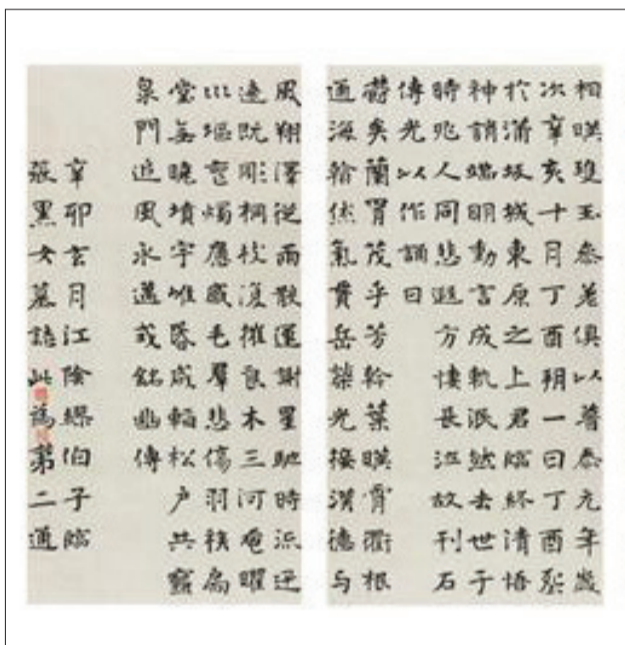 相暎雙玉叅差俱以普泰元年歲
次辛亥十月丁酉朔一日丁酉葬
於蒲坂城東原之上君臨終清悟
神誚端明動言成軌泯然去世于
時兆人同悲遐方悽長泣故刊石
傳光以作誦曰
欝矣蘭胃茂乎芳幹葉暎霄衢根
通海翰伏氣貫岳榮光接漢德与
風翔澤從雨散運謝星馳時流迅
速既彫桐枝復摧良木三河奄曜
巛塸喪燭應感毛羣悲傷羽族扃
堂無曉墳宇唯昏咸輪松户共寢
泉門追風永邁式銘幽傳
辛卯玄月江陰繆伯子臨
張黑女墓誌此為第二通